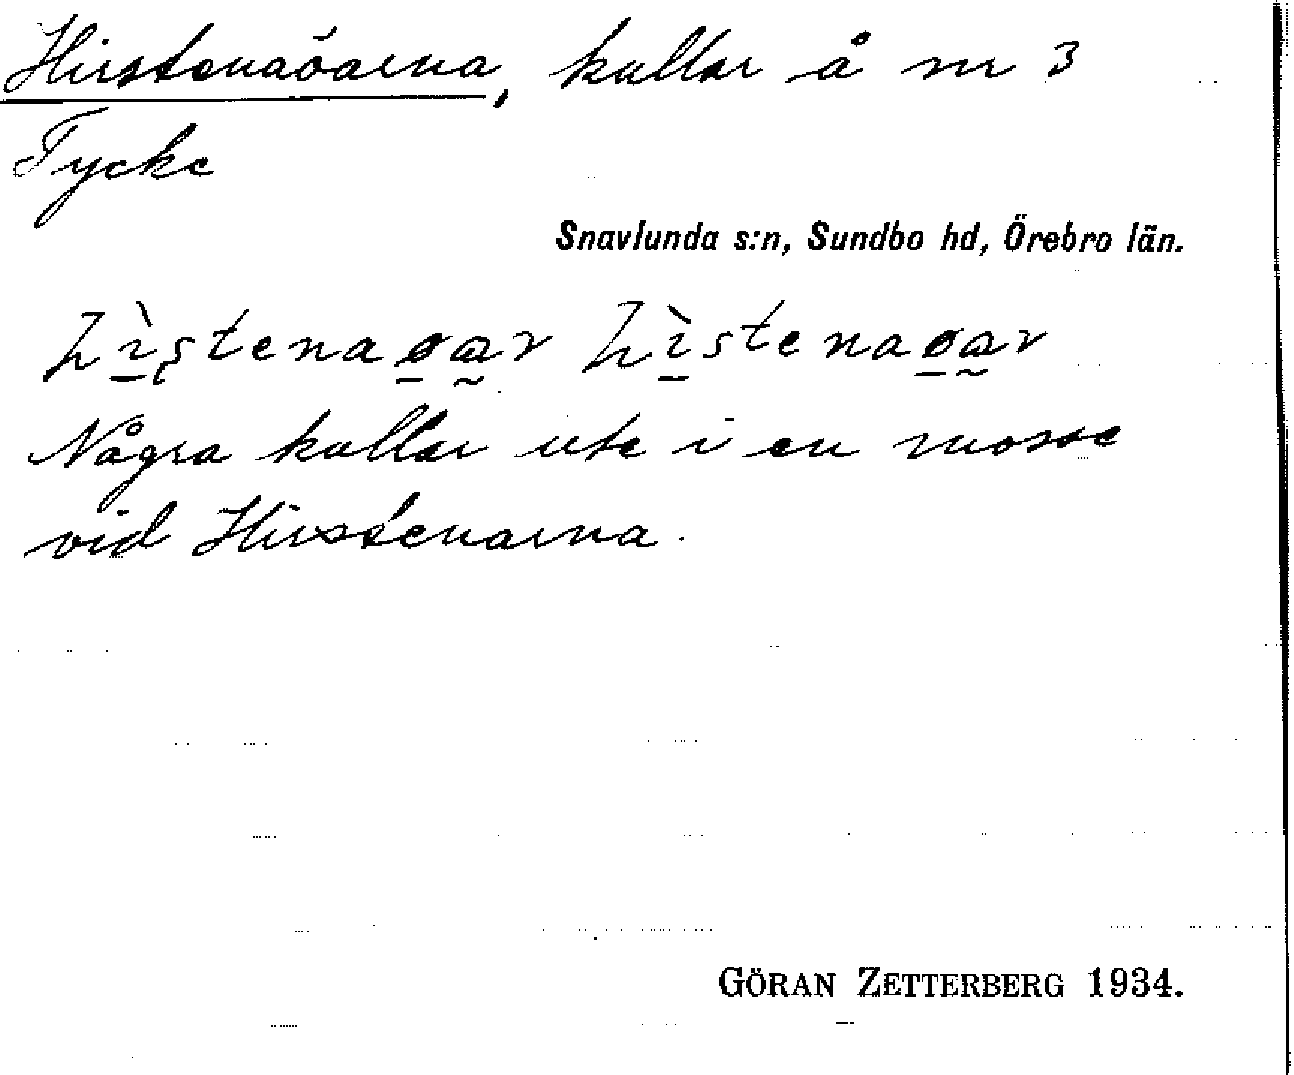 Hirstenaöarna, kullar å nr 3
Tycke
Snavlunda s:n, Sundbo hd, Örebro län.
Några kullar ute i en mosse
vid Hirstenarna.
GÖRAN ZETTERBERG 1934.